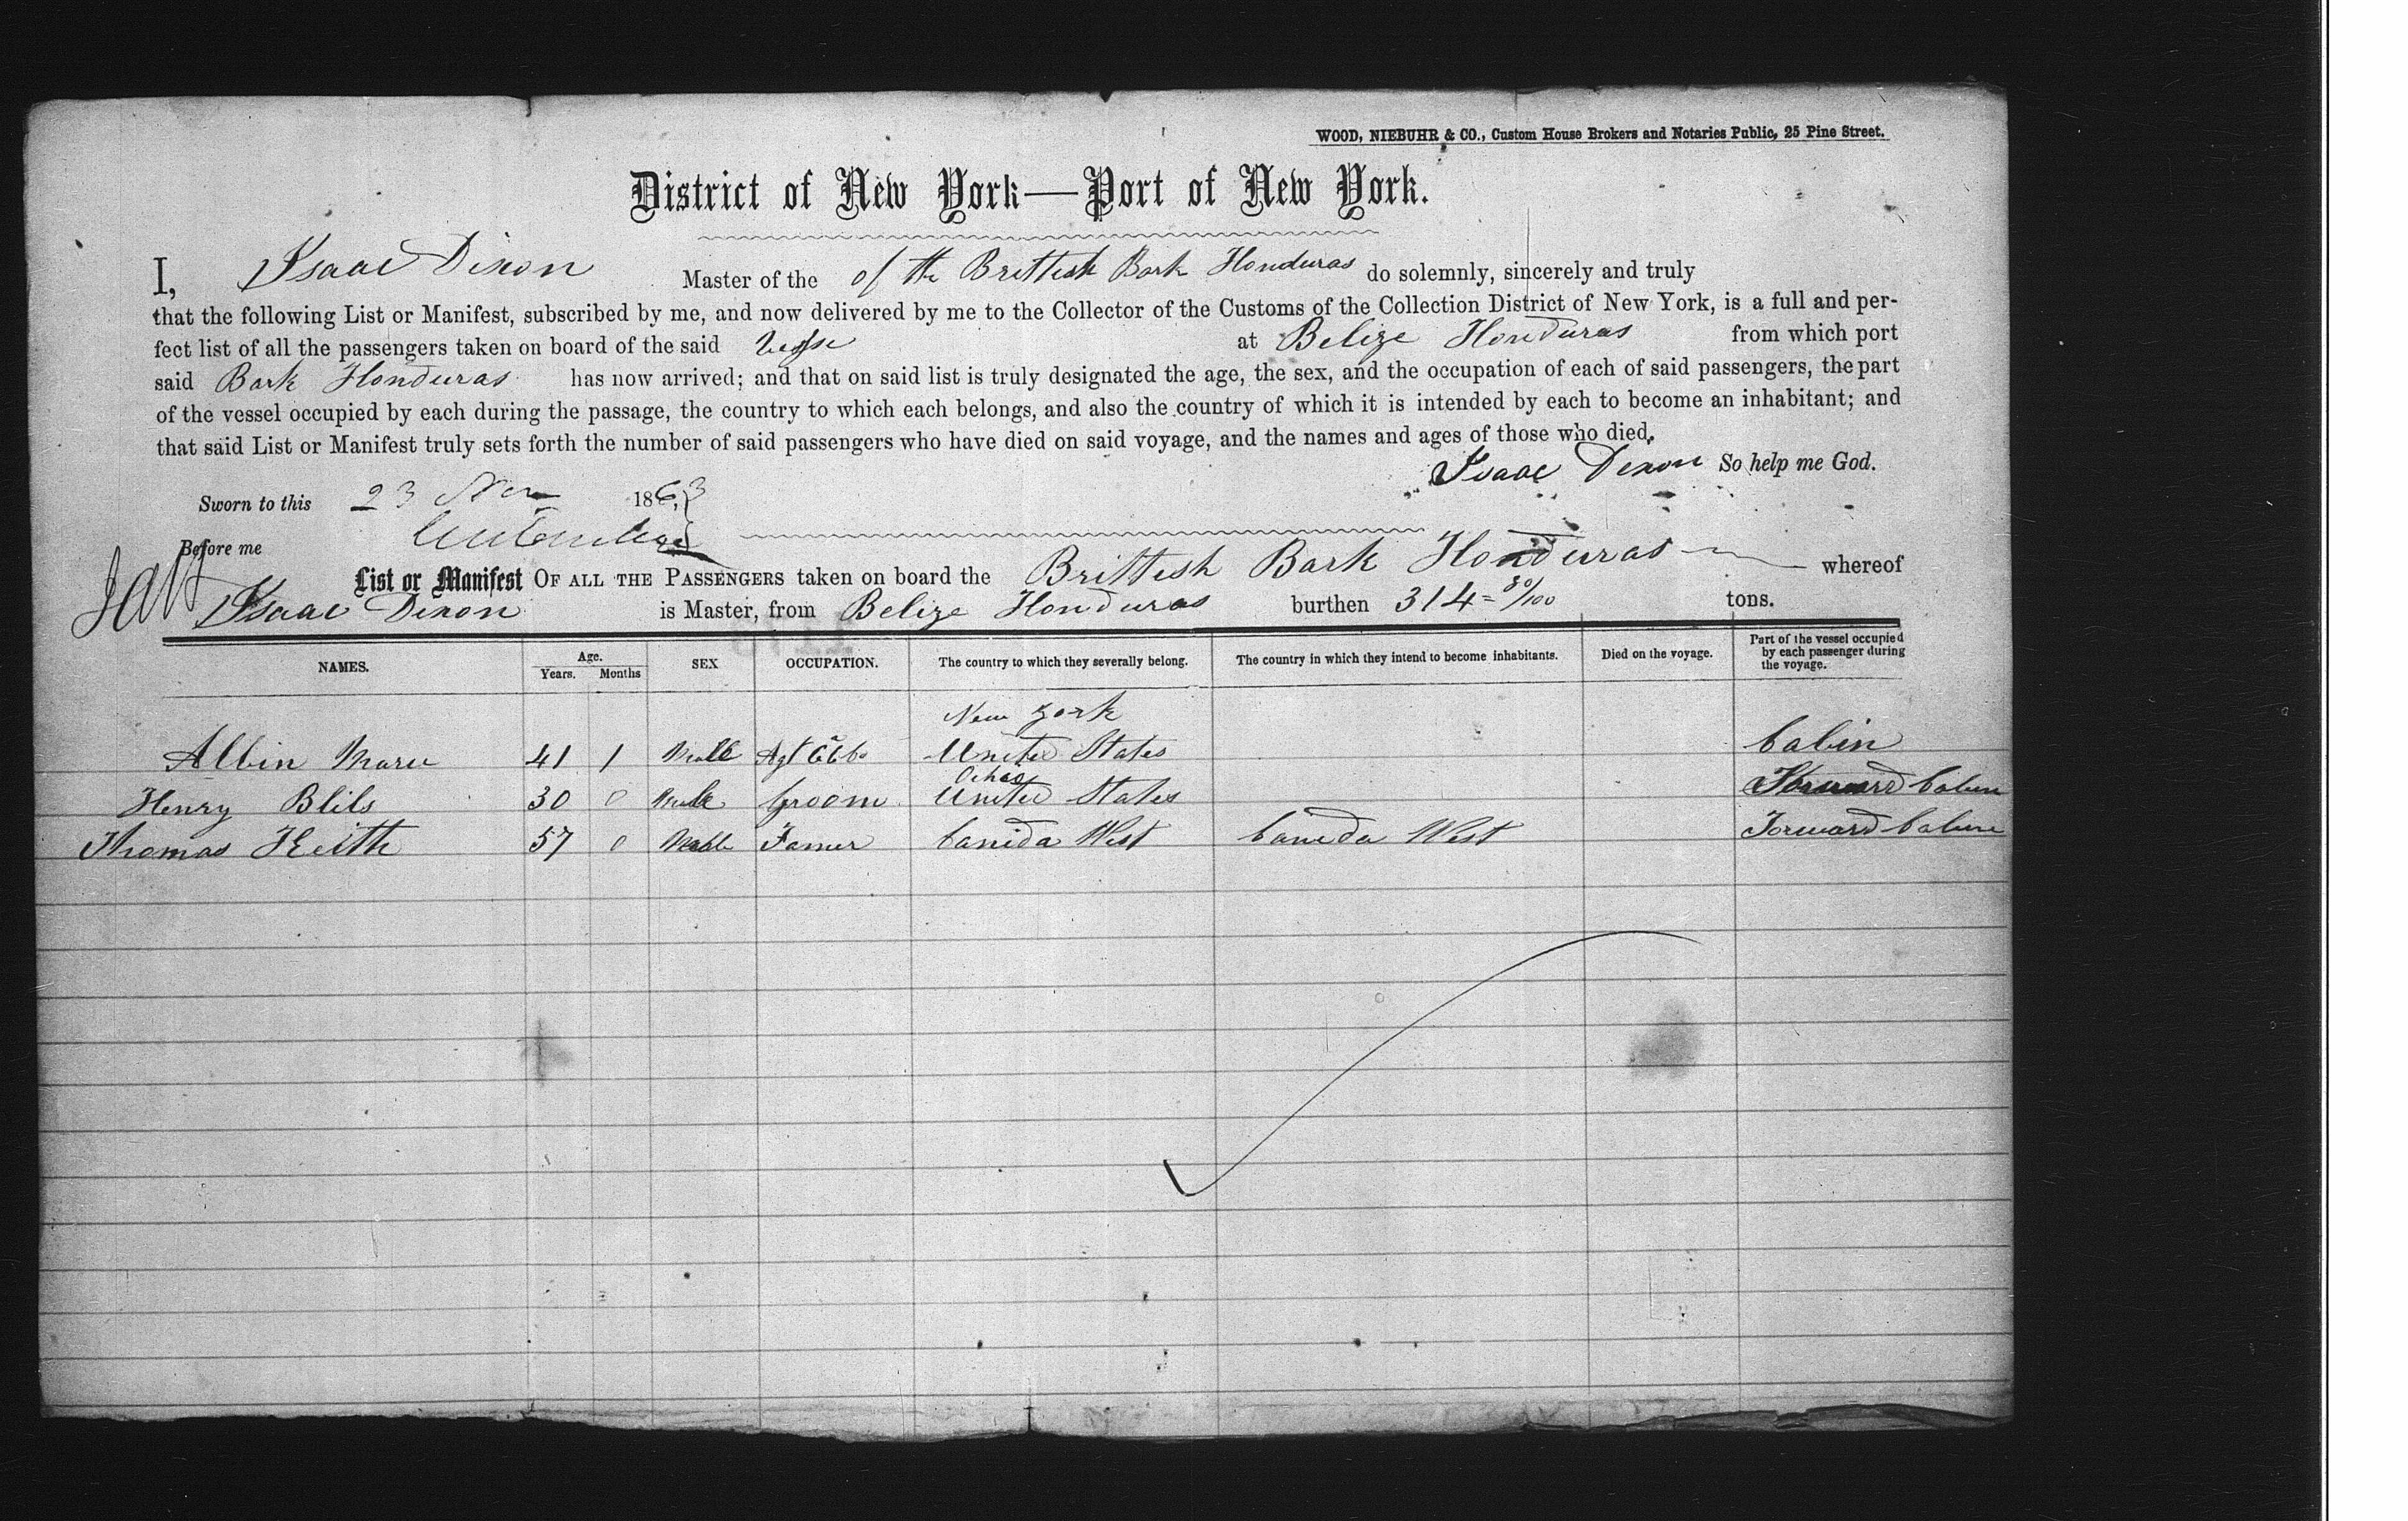 WOOD, NIEBUHR & CO., Custom House Brokers and Notaries Public, 25 Pine Street.
District of New York—Port of New York.
I, Isaac Dixon Master of the of the Brittish Bark Honduras do solemnly, sincerely and truly
that the following List or Manifest, subscribed by me, and now delivered by me to the Collector of the Customs of the Collection District of New York, is a full and per-
fect list of all the passengers taken on board of the said at Belize Honduras from which port
said Bark Honduras has now arrived; and that on said list is truly designated the age, the sex, and the occupation of each of said passengers, the part
of the vessel occupied by each during the passage, the country to which each belongs, and also the country of which it is intended by each to become an inhabitant; and
that said List or Manifest truly sets forth the number of said passengers who have died on said voyage, and the names and ages of those who died.
Isaac Dixon So help me God.
Sworn to this 23 Nov 1863
Before me
List or Manifest OF ALL THE PASSENGERS taken on board the Brittish Bark Honduras whereof
Isaac Dixon is Master, from Belize Honduras burthen 314 = 80/100 tons.
NAMES. Age. Years. Months SEX OCCUPATION. The country to which they severally belong. The country in which they intend to become inhabitants. Died on the voyage. Part of the vessel occupied by each passenger during the voyage.
New York
Albin 41 1 Male United States Cabin
Henry Blils 30 0 Male Groom United States Forward Cabin
Thomas Keith 57 0 Male Famer Canida West Caneda West Forward Cabin